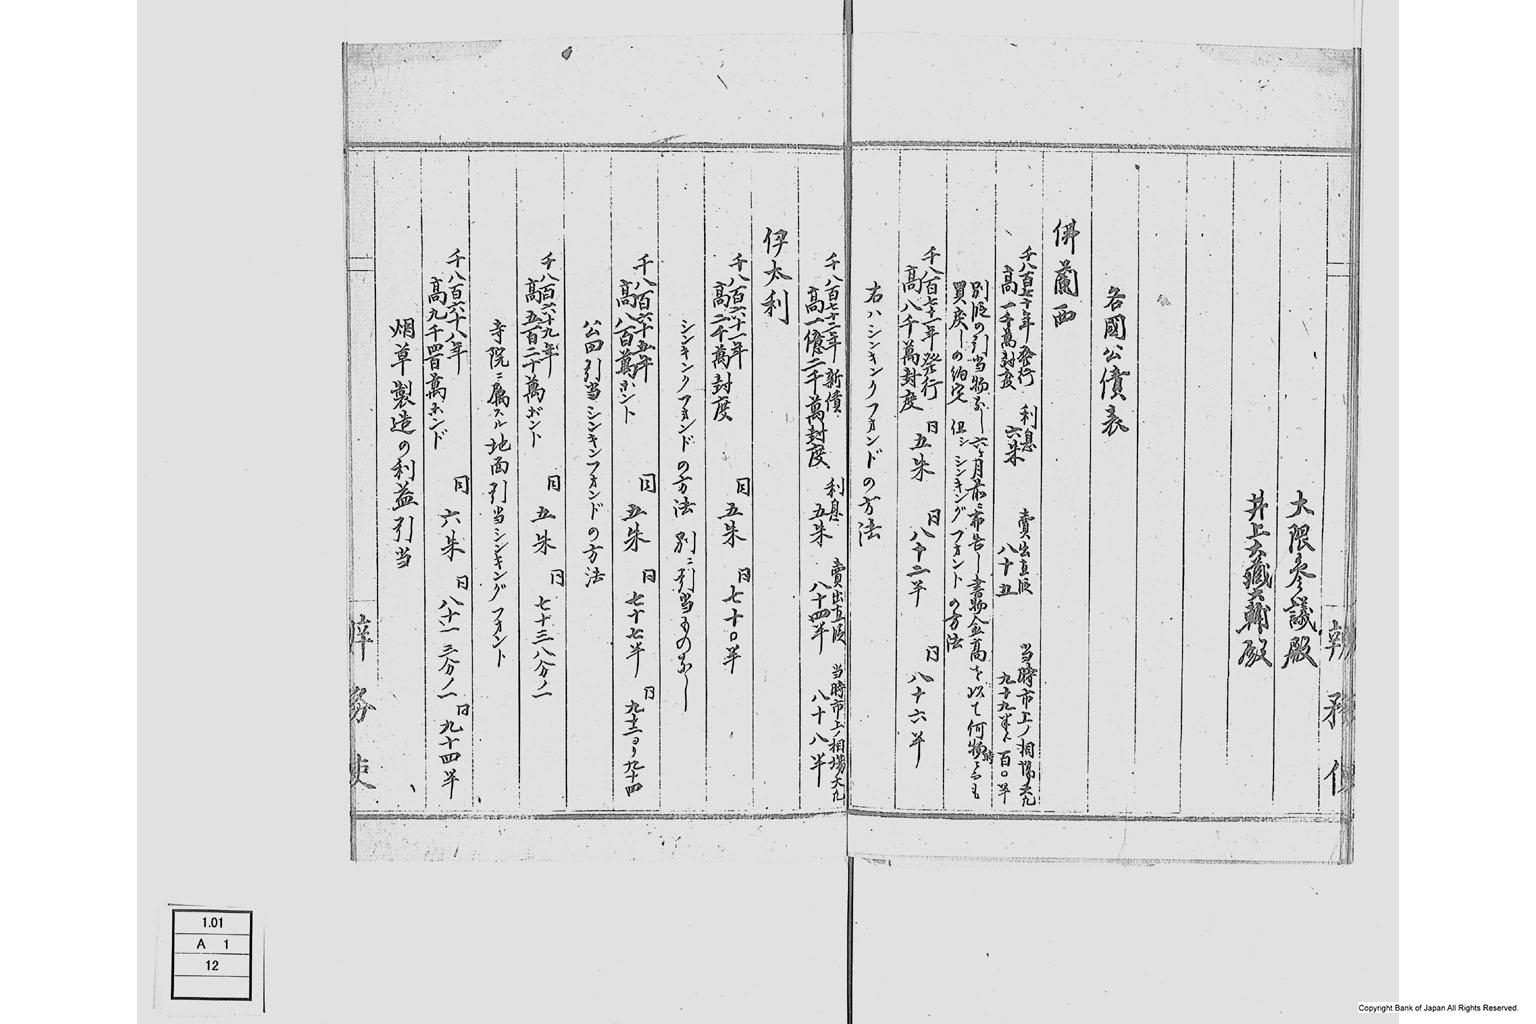 大隈参議殿
井上大蔵大輔殿
各國公債表
佛蘭西
千八百七十年発行
高一千萬封度
利息
六朱
賣出直段
八十五
当時市上ノ相場大凡
九十九半ヨリ百〇半
別段の引当物なし六ヶ月前ニ布告し書物金高を以て何時にても
買戻しの約定 但シシンキングフォントの方法
千八百七十一年発行
高八千萬封度
同五朱
同八十二半
同八十六半
右ハシンキンクフォンドの方法
千八百七十二年新債
高一億二千萬封度
利息
五朱
賣出直段
八十四半
当時市上ノ相場大凡
八十八半
伊太利
千八百六十一年
高二千萬封度
同五朱
同七十〇半
シンキンクフォンドの方法 別ニ引当ものなし
千八百六十五年
高八百萬ホント
同五朱
同七十七半
同九十三ヨリ九十四
公田引当シンキンフォンドの方法
千八百六十九年
高五百二十萬ホント
同五朱
同七十三八分ノ一
寺院ニ属スル地面引当シンキングフォント
千八百六十八年
高九千四百萬ホンド
同六朱
同八十一三分ノ一
同九十四半
烟草製造の利益引当
1.01
A 1
12
Copyright Bank of Japan All Rights Reserved.